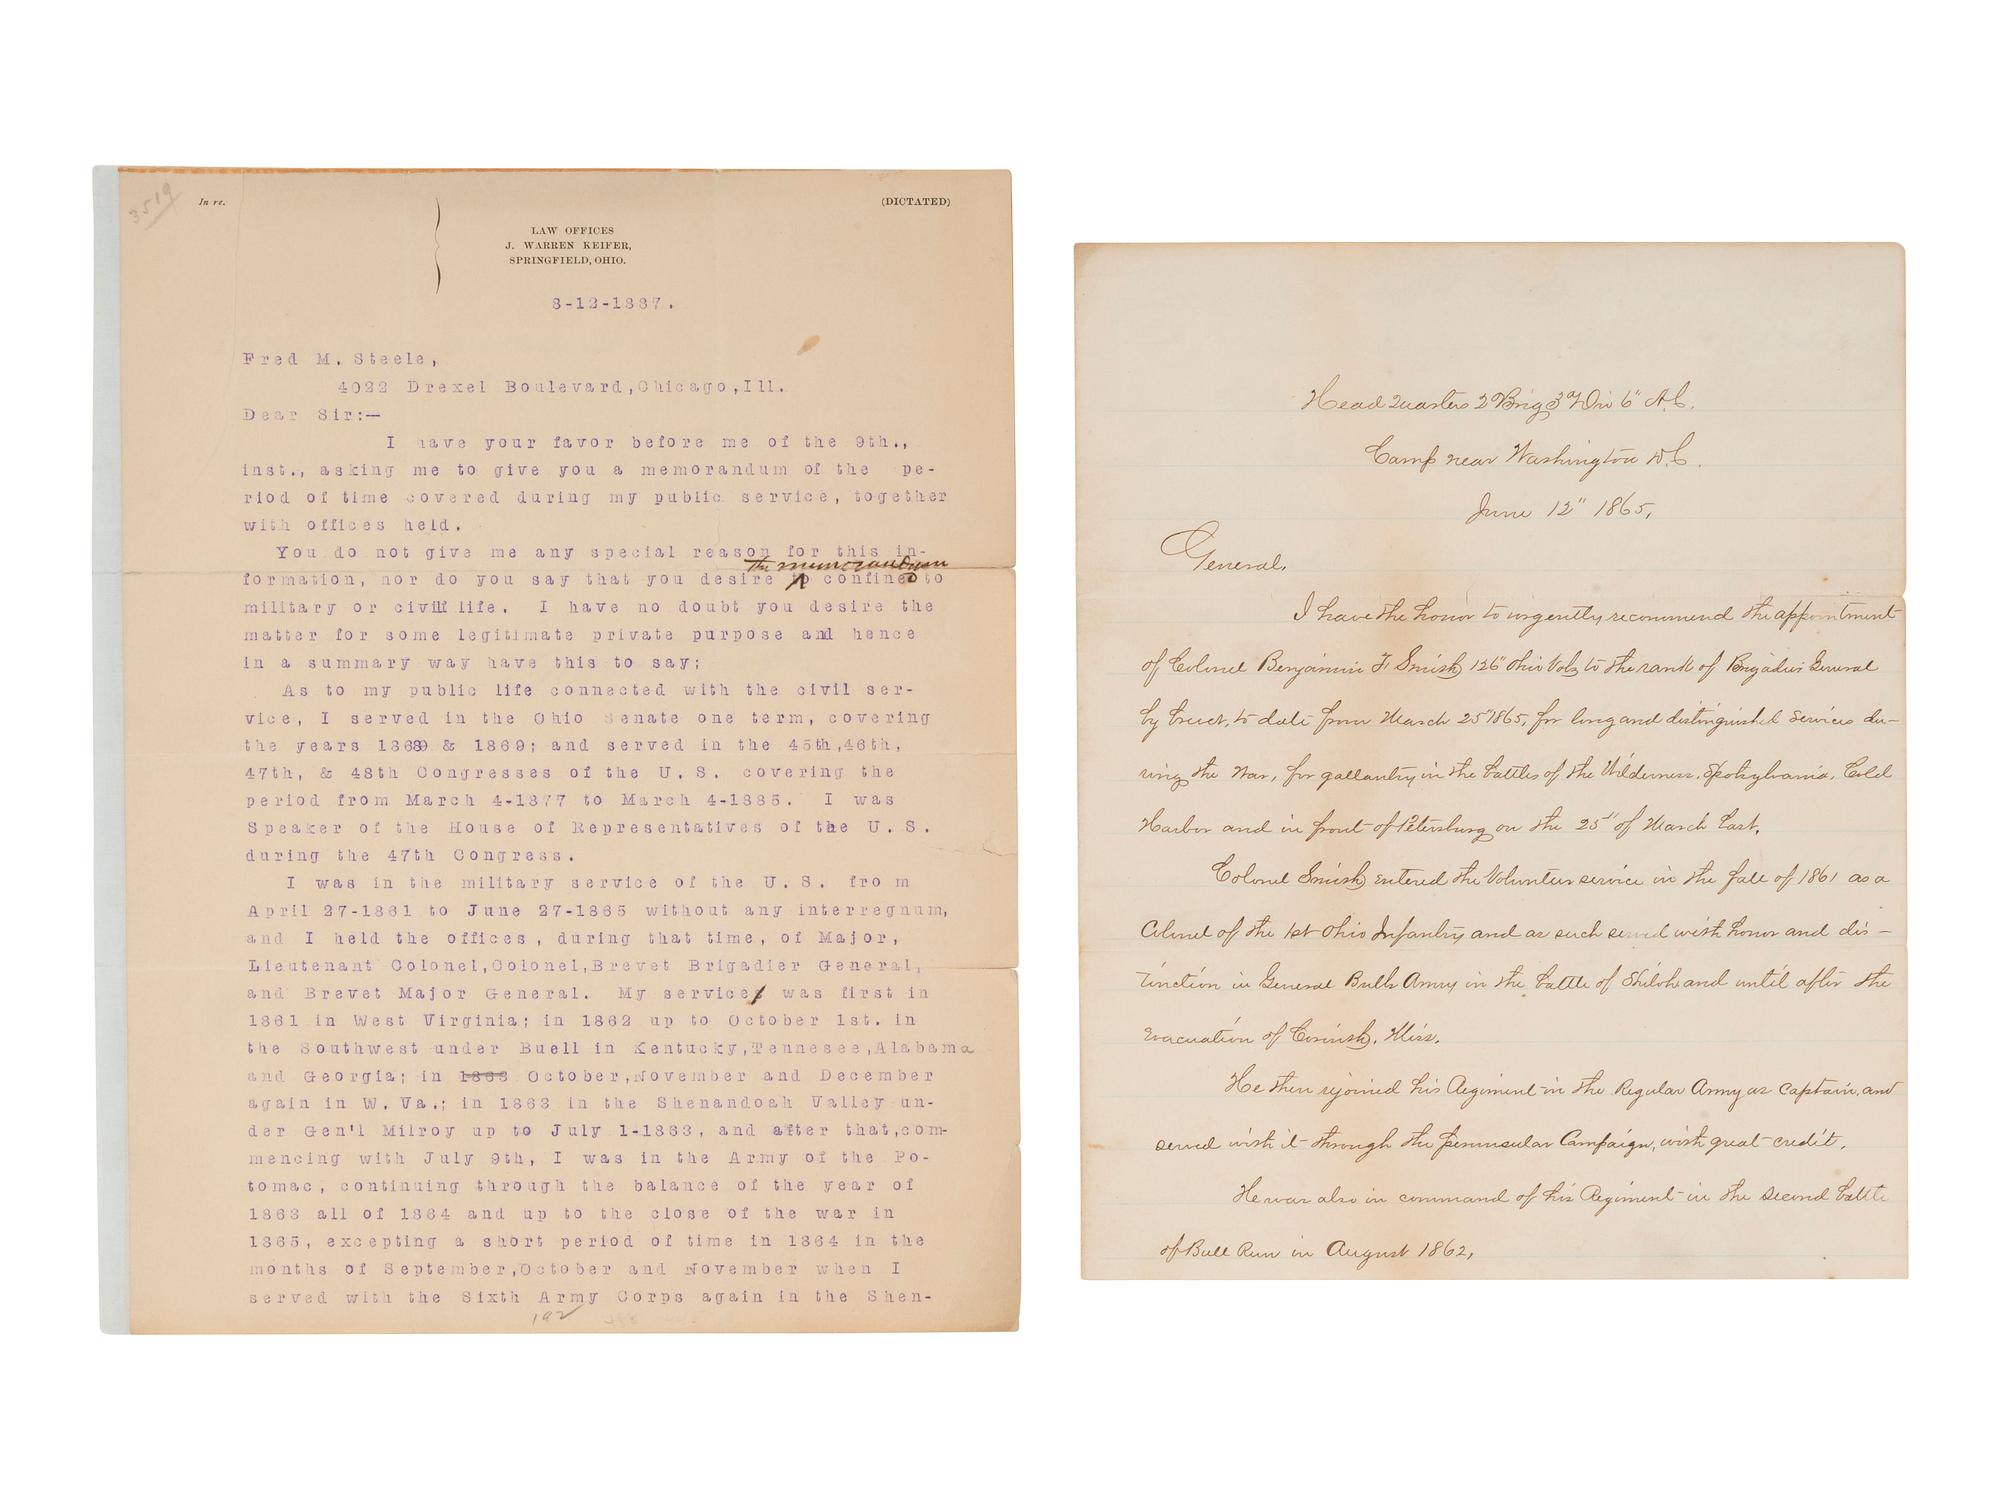 3519
In re.
(DICTATED)
LAW OFFICES
J. WARREN KEIFER,
SPRINGFIELD, OHIO.
8-12-1887.
Fred M. Steele,
4022 Drexel Boulevard,Chicago,Ill.
Dear Sir:—
I have your favor before me of the 9th.,
inst., asking me to give you a memorandum of the pe-
riod of time covered during my public service, together
with offices held.
You do not give me any special reason for this in-
the memorandum
formation, nor do you say that you desire to confined to
military or civil life. I have no doubt you desire the
matter for some legitimate private purpose and hence
in a summary way have this to say;
As to my public life connected with the civil ser-
vice, I served in the Ohio Senate one term, covering
the years 1868 & 1869; and served in the 45th,46th,
47th, & 48th Congresses of the U.S. covering the
period from March 4-1877 to March 4-1885. I was
Speaker of the House of Representatives of the U.S.
during the 47th Congress.
I was in the military service of the U.S. fro m
April 27-1861 to June 27-1865 without any interregnum,
and I held the offices, during that time, of Major,
Lieutenant Colonel,Colonel,Brevet Brigadier General,
and Brevet Major General. My service was first in
1861 in West Virginia; in 1862 up to October 1st. in
the Southwest under Buell in Kentucky,Tennesee,Alabama
and Georgia; in 1863 October,November and December
again in W. Va.; in 1863 in the Shenandoah Valley un-
der Gen'l Milroy up to July 1-1863, and after that,com-
mencing with July 9th, I was in the Army of the Po-
tomac, continuing through the balance of the year of
1863 all of 1864 and up to the close of the war in
1865, excepting a short period of time in 1864 in the
months of September,October and November when I
served with the Sixth Army Corps again in the Shen-
192
Head Quarters 2 Brig 3d Div 6" A.C.
Camp near Washington D.C.
June 12" 1865,
General,
I have the honor to urgently recommend the appointment
of Colonel Benjamin F Smith 126" Ohio Vols to the rank of Brigadier General
by brevet, to date from March 25" 1865, for long and distinguished services du-
ring the War, for gallantry in the battles of the Wilderness, Spotsylvania, Cold
Harbor and in front of Petersburg on the 25" of March last.
Colonel Smith entered the Volunteer service in the fall of 1861 as a
Colonel of the 1st Ohio Infantry and as such served with honor and dis-
tinction in General Buells Army in the battle of Shiloh and until after the
evacuation of Corinth, Miss.
He then rejoined his Regiment in the Regular Army as Captain, and
served with it through the peninsular Campaign, with great credit.
He was also in command of his Regiment in the second battle
of Bull Run in August 1862,